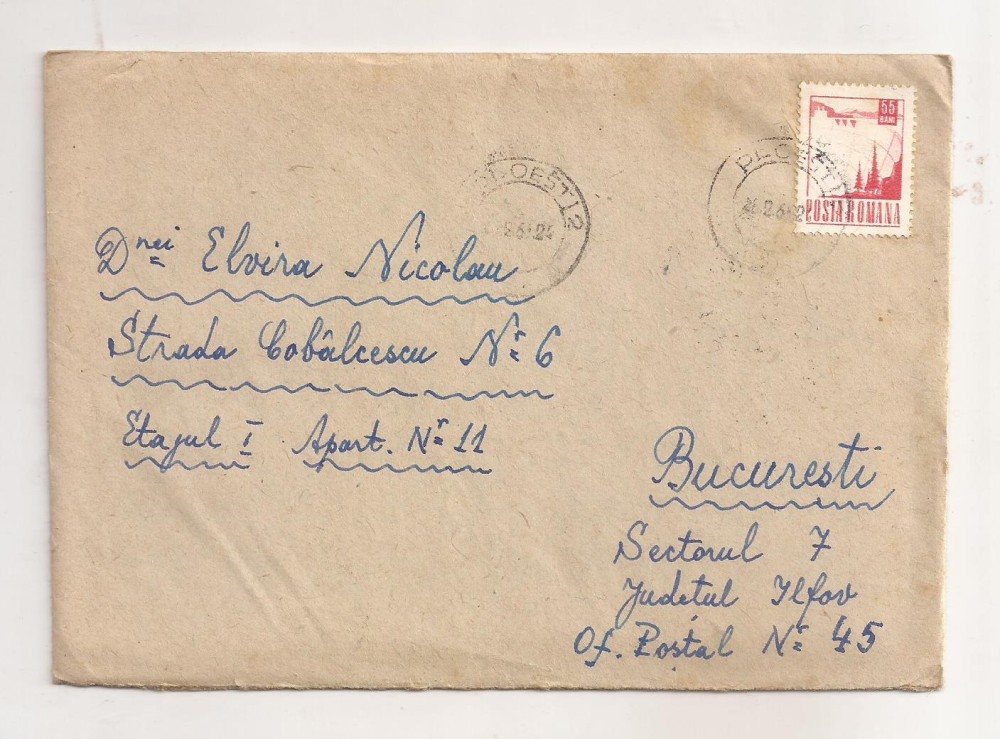 55
BANI
POSTA ROMANA
PLOESTI
PLOESTI 2
Dnei Elvira Nicolau
Strada Cobâlcescu Nr 6
Etajul I Apart. Nr 11
Bucuresti
Sectorul 7
Judetul Ilfov
Of. Poștal Nr 45